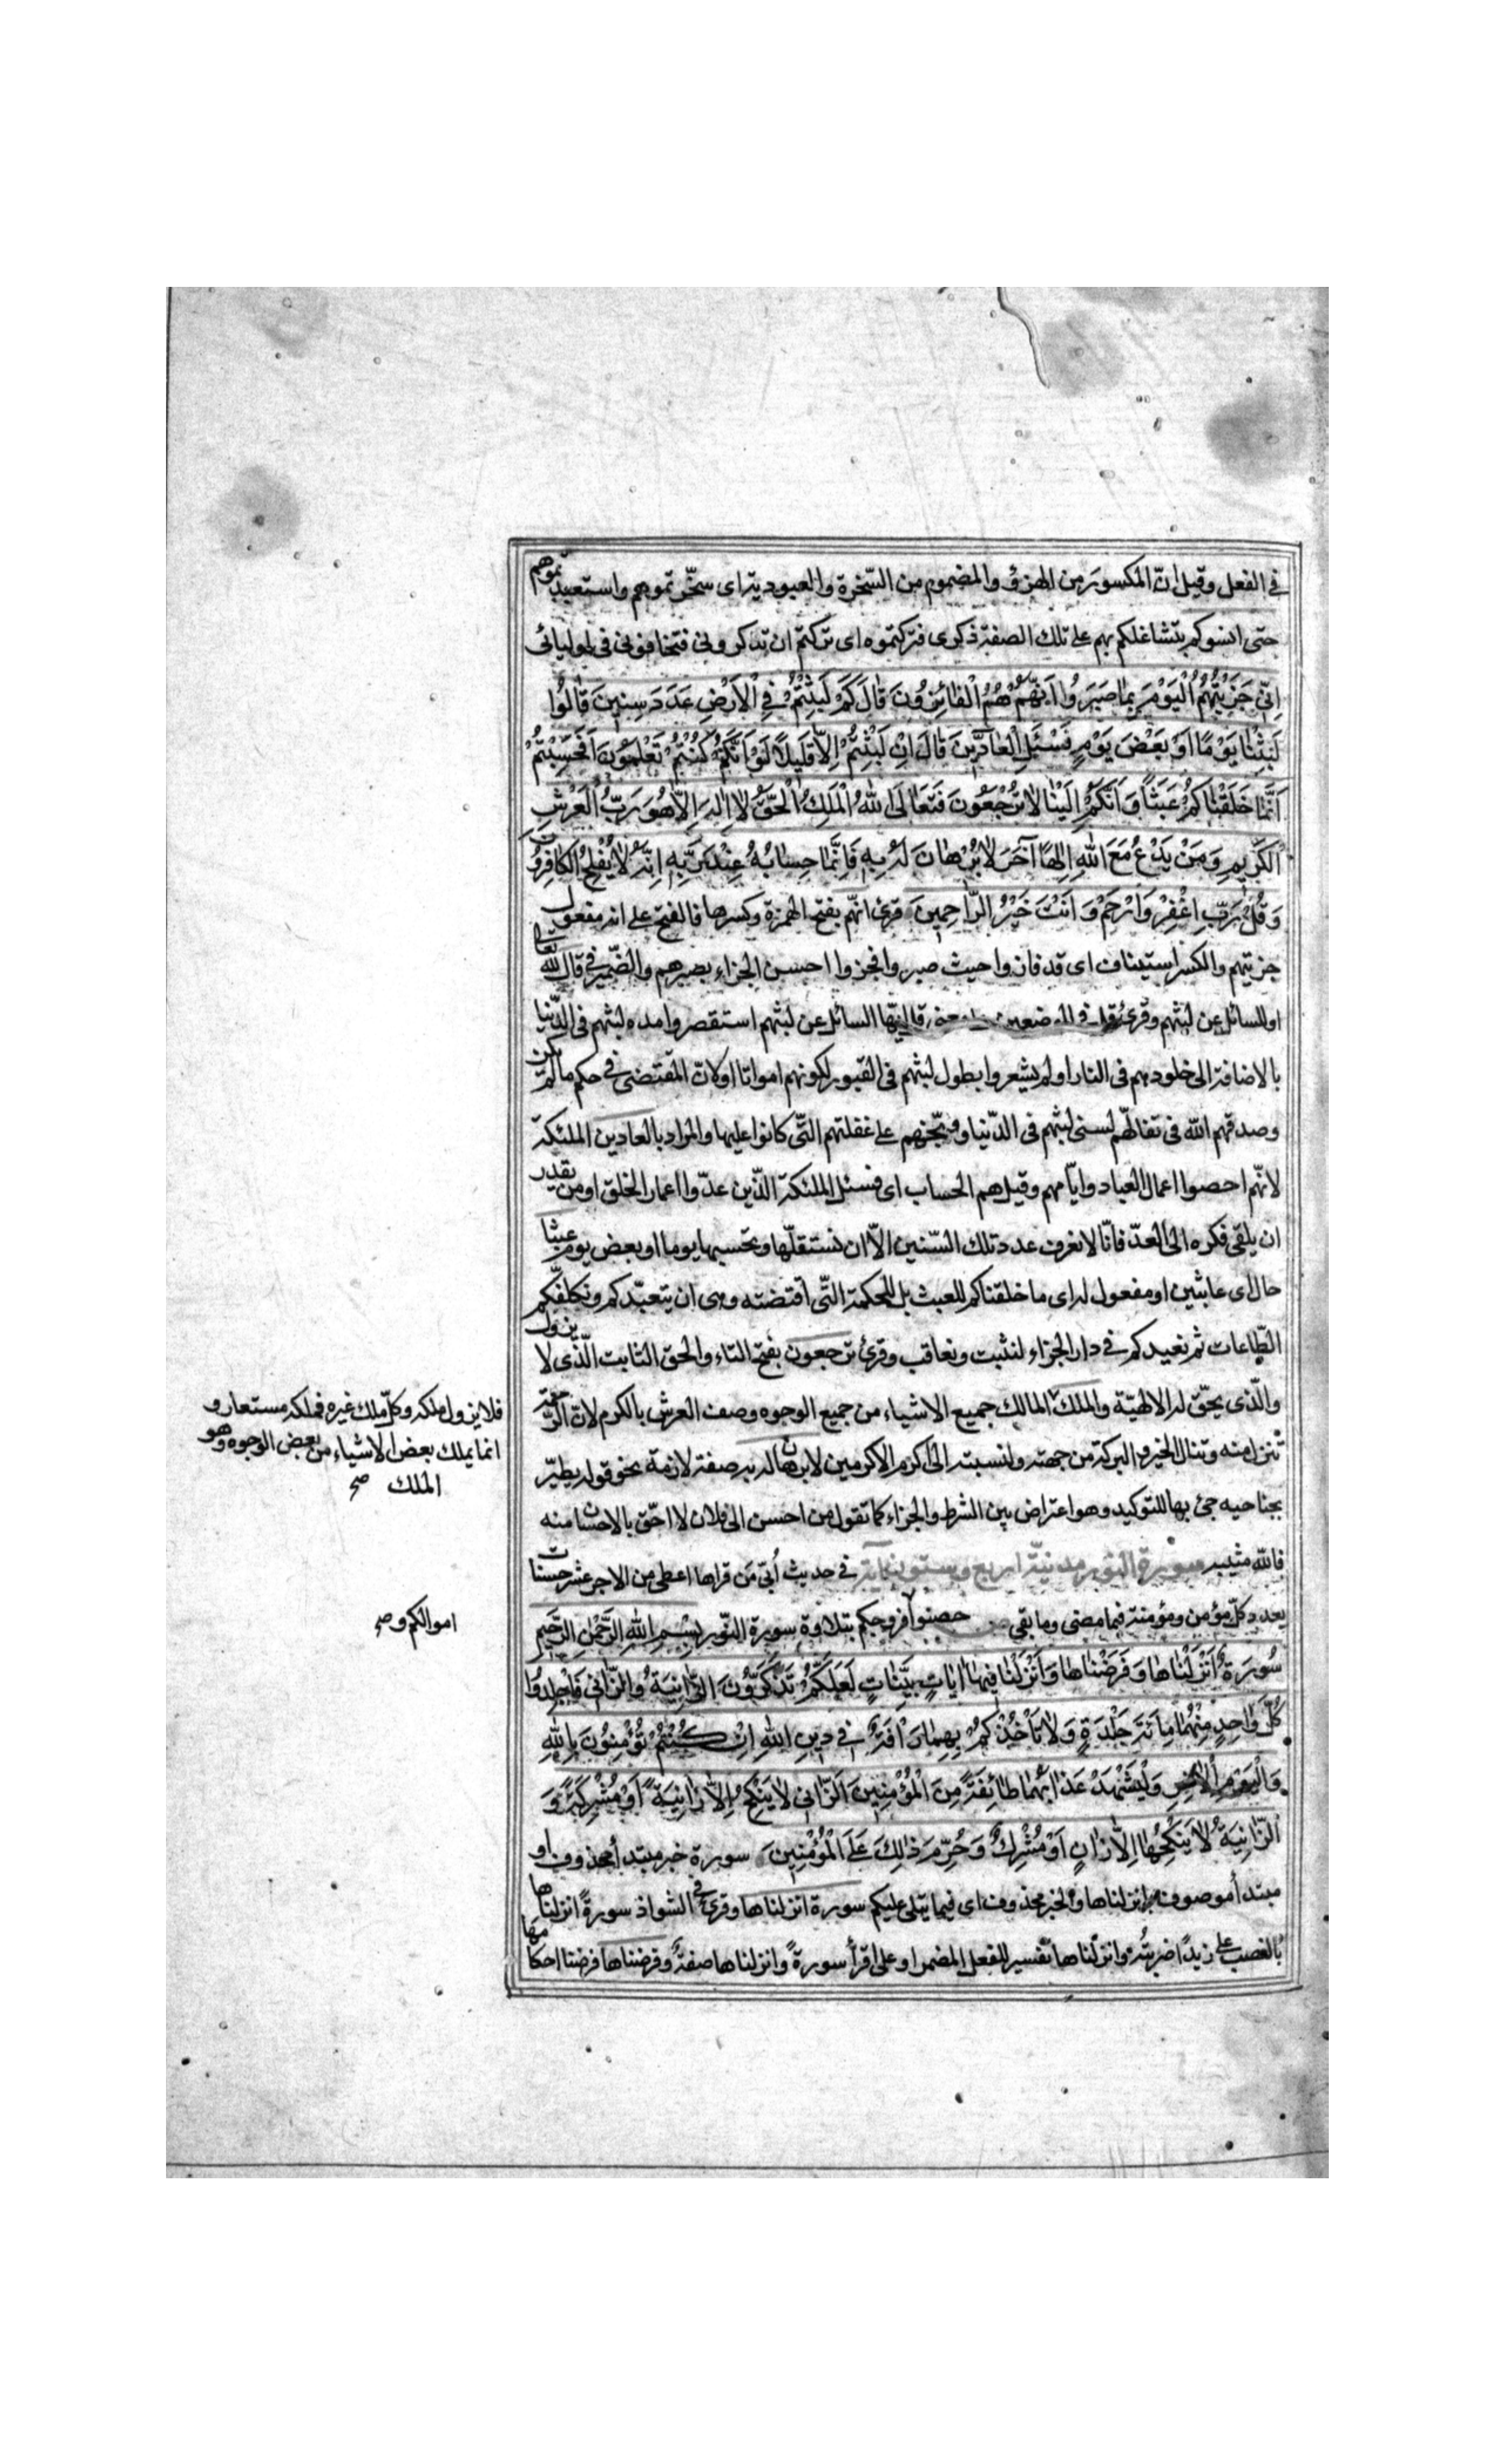 في الفعل وقيل انّ المكسور من الهزؤ والمضموم من السّخرة والعبودية اى سخّرتموهم واستعبدتموهم
حتى انسوكم بتشاغلكم بهم على تلك الصفة ذكرى فتركتموه اى تركتم ان تذكرونى فتخافونى فى اوليائى
اِنّى جَزَيْتُهُمُ الْيَوْمَ بِمٰا صَبَرُوا اَنَّهُمْ هُمُ الْفٰائِزُونَ قٰالَ كَمْ لَبِثْتُمْ فِي الْاَرْضِ عَدَدَ سِنينَ قٰالُوا
لَبِثْنٰا يَوْمًا اَوْ بَعْضَ يَوْمٍ فَسْئَلِ الْعٰادّينَ قٰالَ اِنْ لَبِثْتُمْ اِلّاٰ قَليلًا لَوْ اَنَّكُمْ كُنْتُمْ تَعْلَمُونَ اَفَحَسِبْتُمْ
اَنَّمٰا خَلَقْنٰاكُمْ عَبَثًا وَ اَنَّكُمْ اِلَيْنٰا لاٰ تُرْجَعُونَ فَتَعٰالَى اللهُ الْمَلِكُ الْحَقُّ لاٰ اِلٰهَ اِلّاٰ هُوَ رَبُّ الْعَرْشِ
الْكَريمِ وَ مَنْ يَدْعُ مَعَ اللهِ اِلٰهًا آخَرَ لاٰ بُرْهٰانَ لَهُ بِهِ فَاِنَّمٰا حِسٰابُهُ عِنْدَ رَبِّهِ اِنَّهُ لاٰ يُفْلِحُ الْكٰافِرُونَ
وَ قُلْ رَبِّ اغْفِرْ وَ ارْحَمْ وَ اَنْتَ خَيْرُ الرّٰاحِمينَ قرئ انّهم بفتح الهمزة وكسرها فالفتح على انه مفعول
جزيتهم والكسر استيناف اى قد فازوا حيث صبروا فجزوا احسن الجزاء بصبرهم والضمير فى قال لله تعالى
او للسائل عن لبثهم وقرئ قل فى الموضعين السائل عن لبثهم استقصروا مدة لبثهم فى الدّنيا
بالاضافة الى خلودهم فى النار او لم يشعروا بطول لبثهم فى القبور لكونهم امواتا او لانّ المقتضى فى حكم ما لم يكن
وصدقهم الله فى تقالّهم لسنى لبثهم فى الدّنيا ووبّخهم على غفلتهم التّى كانوا عليها والمراد بالعادين الملئكة
لانّهم احصوا اعمال العباد وايّامهم وقيل هم الحساب اى فسئل الملئكة الذّين عدّوا اعمار الخلق او من يقدر
ان يلقى فكره الى العدّ فانّا لا نعرف عدد تلك السّنين الّا ان نستقلّها ونحسبها يوما او بعض يوم عبثا
حال اى عابثين او مفعول له اى ما خلقناكم للعبث بل للحكمة التّى اقتضته وهى ان نتعبّدكم ونكلفّكم
الطّاعات ثم نعيدكم فى دار الجزاء لنثيب ونعاقب وقرئ ترجعون بفتح التاء والحق الثابت الّذى لا يزول
والّذى يحّق له الالهيّة والملك المالك جميع الاشياء من جميع الوجوه وصف العرش بالكرم لانّ الرّحمة
تنزل منه وتنال الخير والبركة من جهته ولنسبته الى اكرم الاكرمين لا برهان له به صفة لازمة نحو قوله يطير
بجناحيه جئ بها للتوكيد وهو اعتراض بين الشرط والجزاء كما تقول من احسن الى فلان لا احّق بالاحسان منه
فالله مثيبه سورة النور مدنيّة اربع وستون آية فى حديث اُبّى مَن قراها اعطى من الاجر عشر حسنات
بعدد كلّ مؤمن ومؤمنة فيما مضى وما بقى حصنوا فروجكم بتلاوة سورة النّور بِسْمِ اللهِ الرَّحْمٰنِ الرَّحيمِ
سُورَةٌ اَنْزَلْنٰاهٰا وَ فَرَضْنٰاهٰا وَ اَنْزَلْنٰا فيهٰا اٰيٰاتٍ بَيِّنٰاتٍ لَعَلَّكُمْ تَذَكَّرُونَ الزّٰانِيَةُ وَالزّٰانى فَاجْلِدُوا
كُلَّ وٰاحِدٍ مِنْهُمٰا مِائَةَ جَلْدَةٍ وَ لاٰ تَأْخُذْكُمْ بِهِمٰا رَأْفَةٌ فى دينِ اللهِ اِنْ كُنْتُمْ تُؤْمِنُونَ بِاللهِ
وَالْيَوْمِ الْاٰخِرِ وَلْيَشْهَدْ عَذٰابَهُمٰا طٰائِفَةٌ مِنَ الْمُؤْمِنينَ اَلزّٰانى لاٰ يَنْكِحُ اِلّاٰ زٰانِيَةً اَوْ مُشْرِكَةً وَ
الزّٰانِيَةُ لاٰ يَنْكِحُهٰا اِلّاٰ زٰانٍ اَوْ مُشْرِكٌ وَ حُرِّمَ ذٰلِكَ عَلَى الْمُؤْمِنينَ سورة خبر مبتدأ محذوف او
مبتدأ موصوف بانزلناها والخبر محذوف اى فيما يتلى عليكم سورة انزلناها وقرئ فى الشواذ سورةً انزلناها
بالنصب على زيدًا ضربته وانزلناها تفسير للفعل المضمر او على اقرأ سورةً وانزلناها صفة وفرضناها فرضنا احكامها
فلا يزول ملكه وكلّ ملك غيره فملكه مستعار و
انما يملك بعض الاشياء من بعض الوجوه وهو
الملك صح
اموالكم و صح